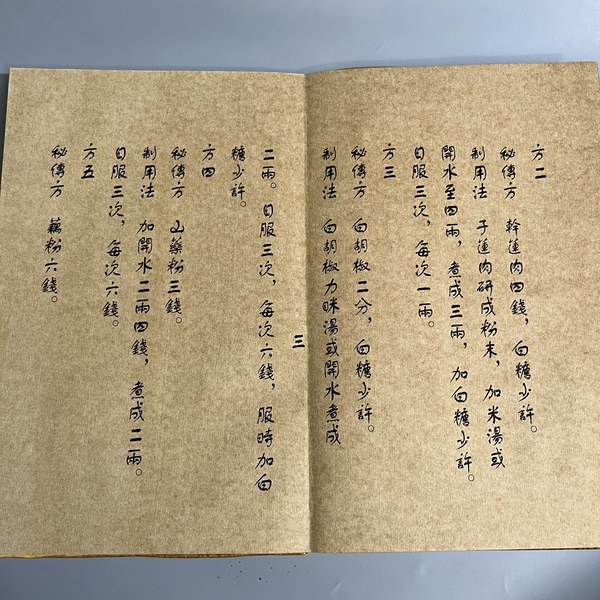 方二
秘傳方　幹蓮肉四錢，白糖少許。
制用法　子蓮肉研成粉末，加米湯或
開水至四兩，煮成三兩，加白糖少許。
日服三次，每次一兩。
方三
秘傳方　白胡椒二分，白糖少許。
制用法　白胡椒力眯湯或開水煮成
三
二兩。日服三次，每次六錢，服時加白
糖少許。
方四
秘傳方　山藥粉三錢。
制用法　加開水二兩四錢，煮成二兩。
日服三次，每次六錢。
方五
秘傳方　藕粉六錢。